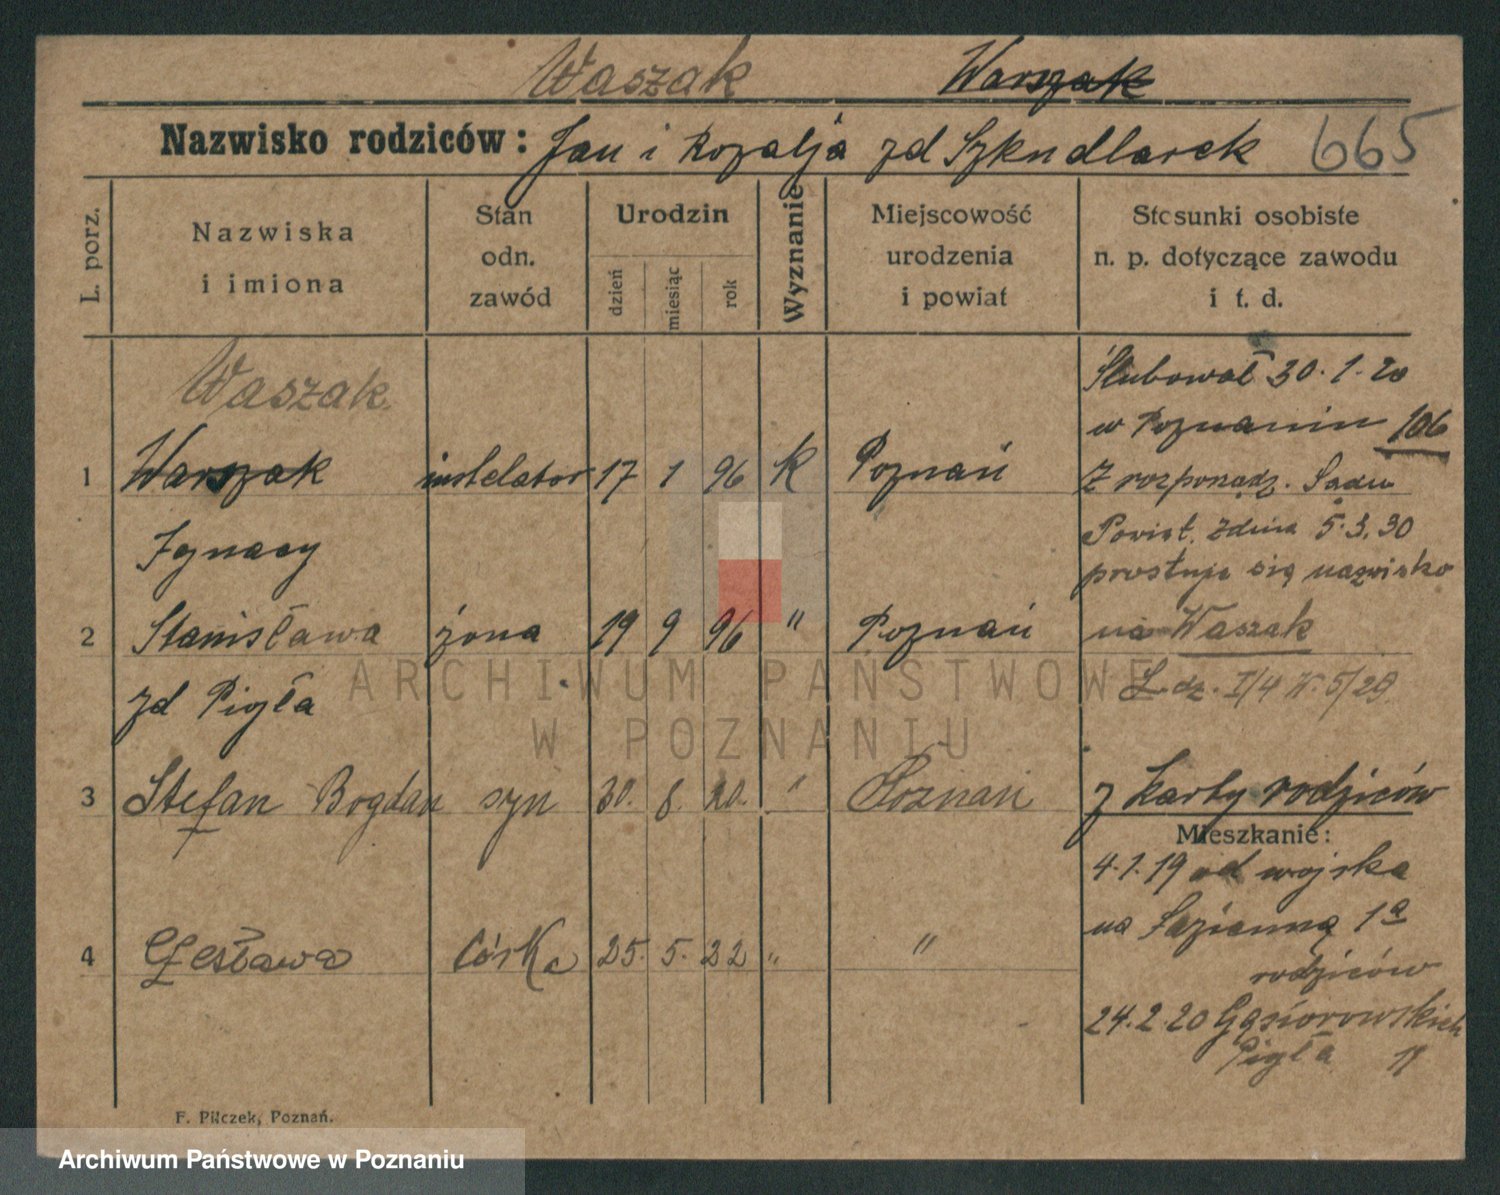 Waszak Warszak
Nazwisko rodziców: Jan i Rozalja zd Szkudlarek 665
L. porz.
Nazwiska
i imiona
Stan
odn.
zawód
Urodzin
dzień
miesiąc
rok
Wyznanie
Miejscowość
urodzenia
i powiat
Stosunki osobiste
n. p. dotyczące zawodu
i t. d.
Waszak
1 Warszak instelator 17 1 96 K Poznań
Ignacy
2 Stanisława żona 19 9 96 " Poznań
zd Pigła
3 Stefan Bogdan syn 30. 8. 20. " Poznań
4 Czesława córka 25. 5. 22 " "
Ślubował 30.1.20
w Poznaniu 106
Z rozporządz. Sadu
Powiat. zdnia 5.3.30
prostuje się nazwisko
na Waszak
L. dz. I/4 W. 5/29
z karty rodziców
Mieszkanie:
4.1.19 od wojska
na Łazienną 1a
rodziców
24.2.20 Gąsiorowskich
Pigła 11
F. Pilczek, Poznań.
ARCHIWUM PAŃSTWOWE
W POZNANIU
Archiwum Państwowe w Poznaniu